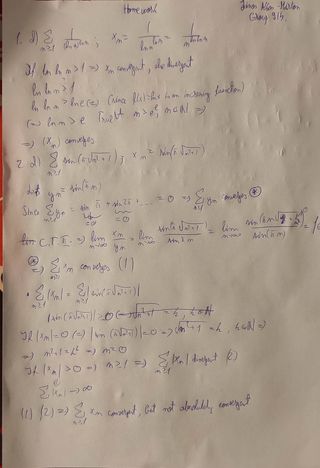 Homework
Group 914
1. d) ∑_{n≥1} 1/(ln n)^{ln ln n} ; x_n =
If ln ln n > 1 => x_n convergent, else divergent
ln ln n > 1
ln ln n > ln e (=) (since f(x)= ln x increasing function)
(=) ln n > e True n > e^e, n∈ℕ =>
=> (x_n) converges
2. d) ∑_{n≥1} sin(π√(n²+1)) ; x_n = sin(π√(n²+1))
Let y_n = sin(π n)
Since ∑_{n≥1} y_n = sin π + sin 2π + ... = 0 => ∑_{n≥1} y_n converges ⊛
=> lim_{n→∞} x_n/y_n = lim_{n→∞} sin(π√(n²+1))/sin π n = lim_{n→∞}
⊛ => ∑_{n≥1} x_n converges (1)
• ∑_{n≥1} |x_n| = ∑_{n≥1} |sin(π√(n²+1))|
If |x_n| = 0 (=) |sin(π√(n²+1))| = 0 => √(n²+1) = k, k∈ℕ =>
=> n²+1 = k² => n = 0
If |x_n| > 0 => n ≥ 1 => ∑_{n≥1} |x_n| divergent (2)
∑ |x_n| → ∞
(1) (2) => ∑_{n≥1} x_n convergent, but not absolutely convergent